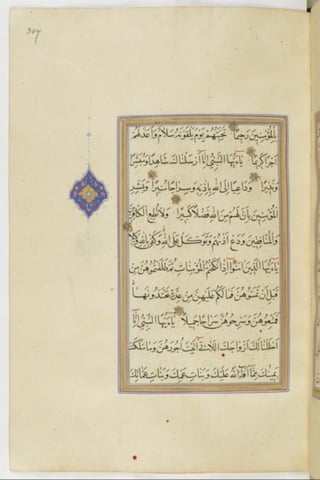 307
بِالْمُؤْمِنِينَ رَحِيمًا تَحِيَّتُهُمْ يَوْمَ يَلْقَوْنَهُ سَلَامٌ وَأَعَدَّ لَهُمْ
أَجْرًا كَرِيمًا يَا أَيُّهَا النَّبِيُّ إِنَّا أَرْسَلْنَاكَ شَاهِدًا وَمُبَشِّرًا
وَنَذِيرًا وَدَاعِيًا إِلَى اللَّهِ بِإِذْنِهِ وَسِرَاجًا مُنِيرًا وَبَشِّرِ
الْمُؤْمِنِينَ بِأَنَّ لَهُمْ مِنَ اللَّهِ فَضْلًا كَبِيرًا وَلَا تُطِعِ الْكَافِرِينَ
وَالْمُنَافِقِينَ وَدَعْ أَذَاهُمْ وَتَوَكَّلْ عَلَى اللَّهِ وَكَفَى بِاللَّهِ وَكِيلًا
يَا أَيُّهَا الَّذِينَ آمَنُوا إِذَا نَكَحْتُمُ الْمُؤْمِنَاتِ ثُمَّ طَلَّقْتُمُوهُنَّ مِنْ
قَبْلِ أَنْ تَمَسُّوهُنَّ فَمَا لَكُمْ عَلَيْهِنَّ مِنْ عِدَّةٍ تَعْتَدُّونَهَا
فَمَتِّعُوهُنَّ وَسَرِّحُوهُنَّ سَرَاحًا جَمِيلًا يَا أَيُّهَا النَّبِيُّ إِنَّا
أَحْلَلْنَا لَكَ أَزْوَاجَكَ اللَّاتِي آتَيْتَ أُجُورَهُنَّ وَمَا مَلَكَتْ
يَمِينُكَ مِمَّا أَفَاءَ اللَّهُ عَلَيْكَ وَبَنَاتِ عَمِّكَ وَبَنَاتِ عَمَّاتِكَ